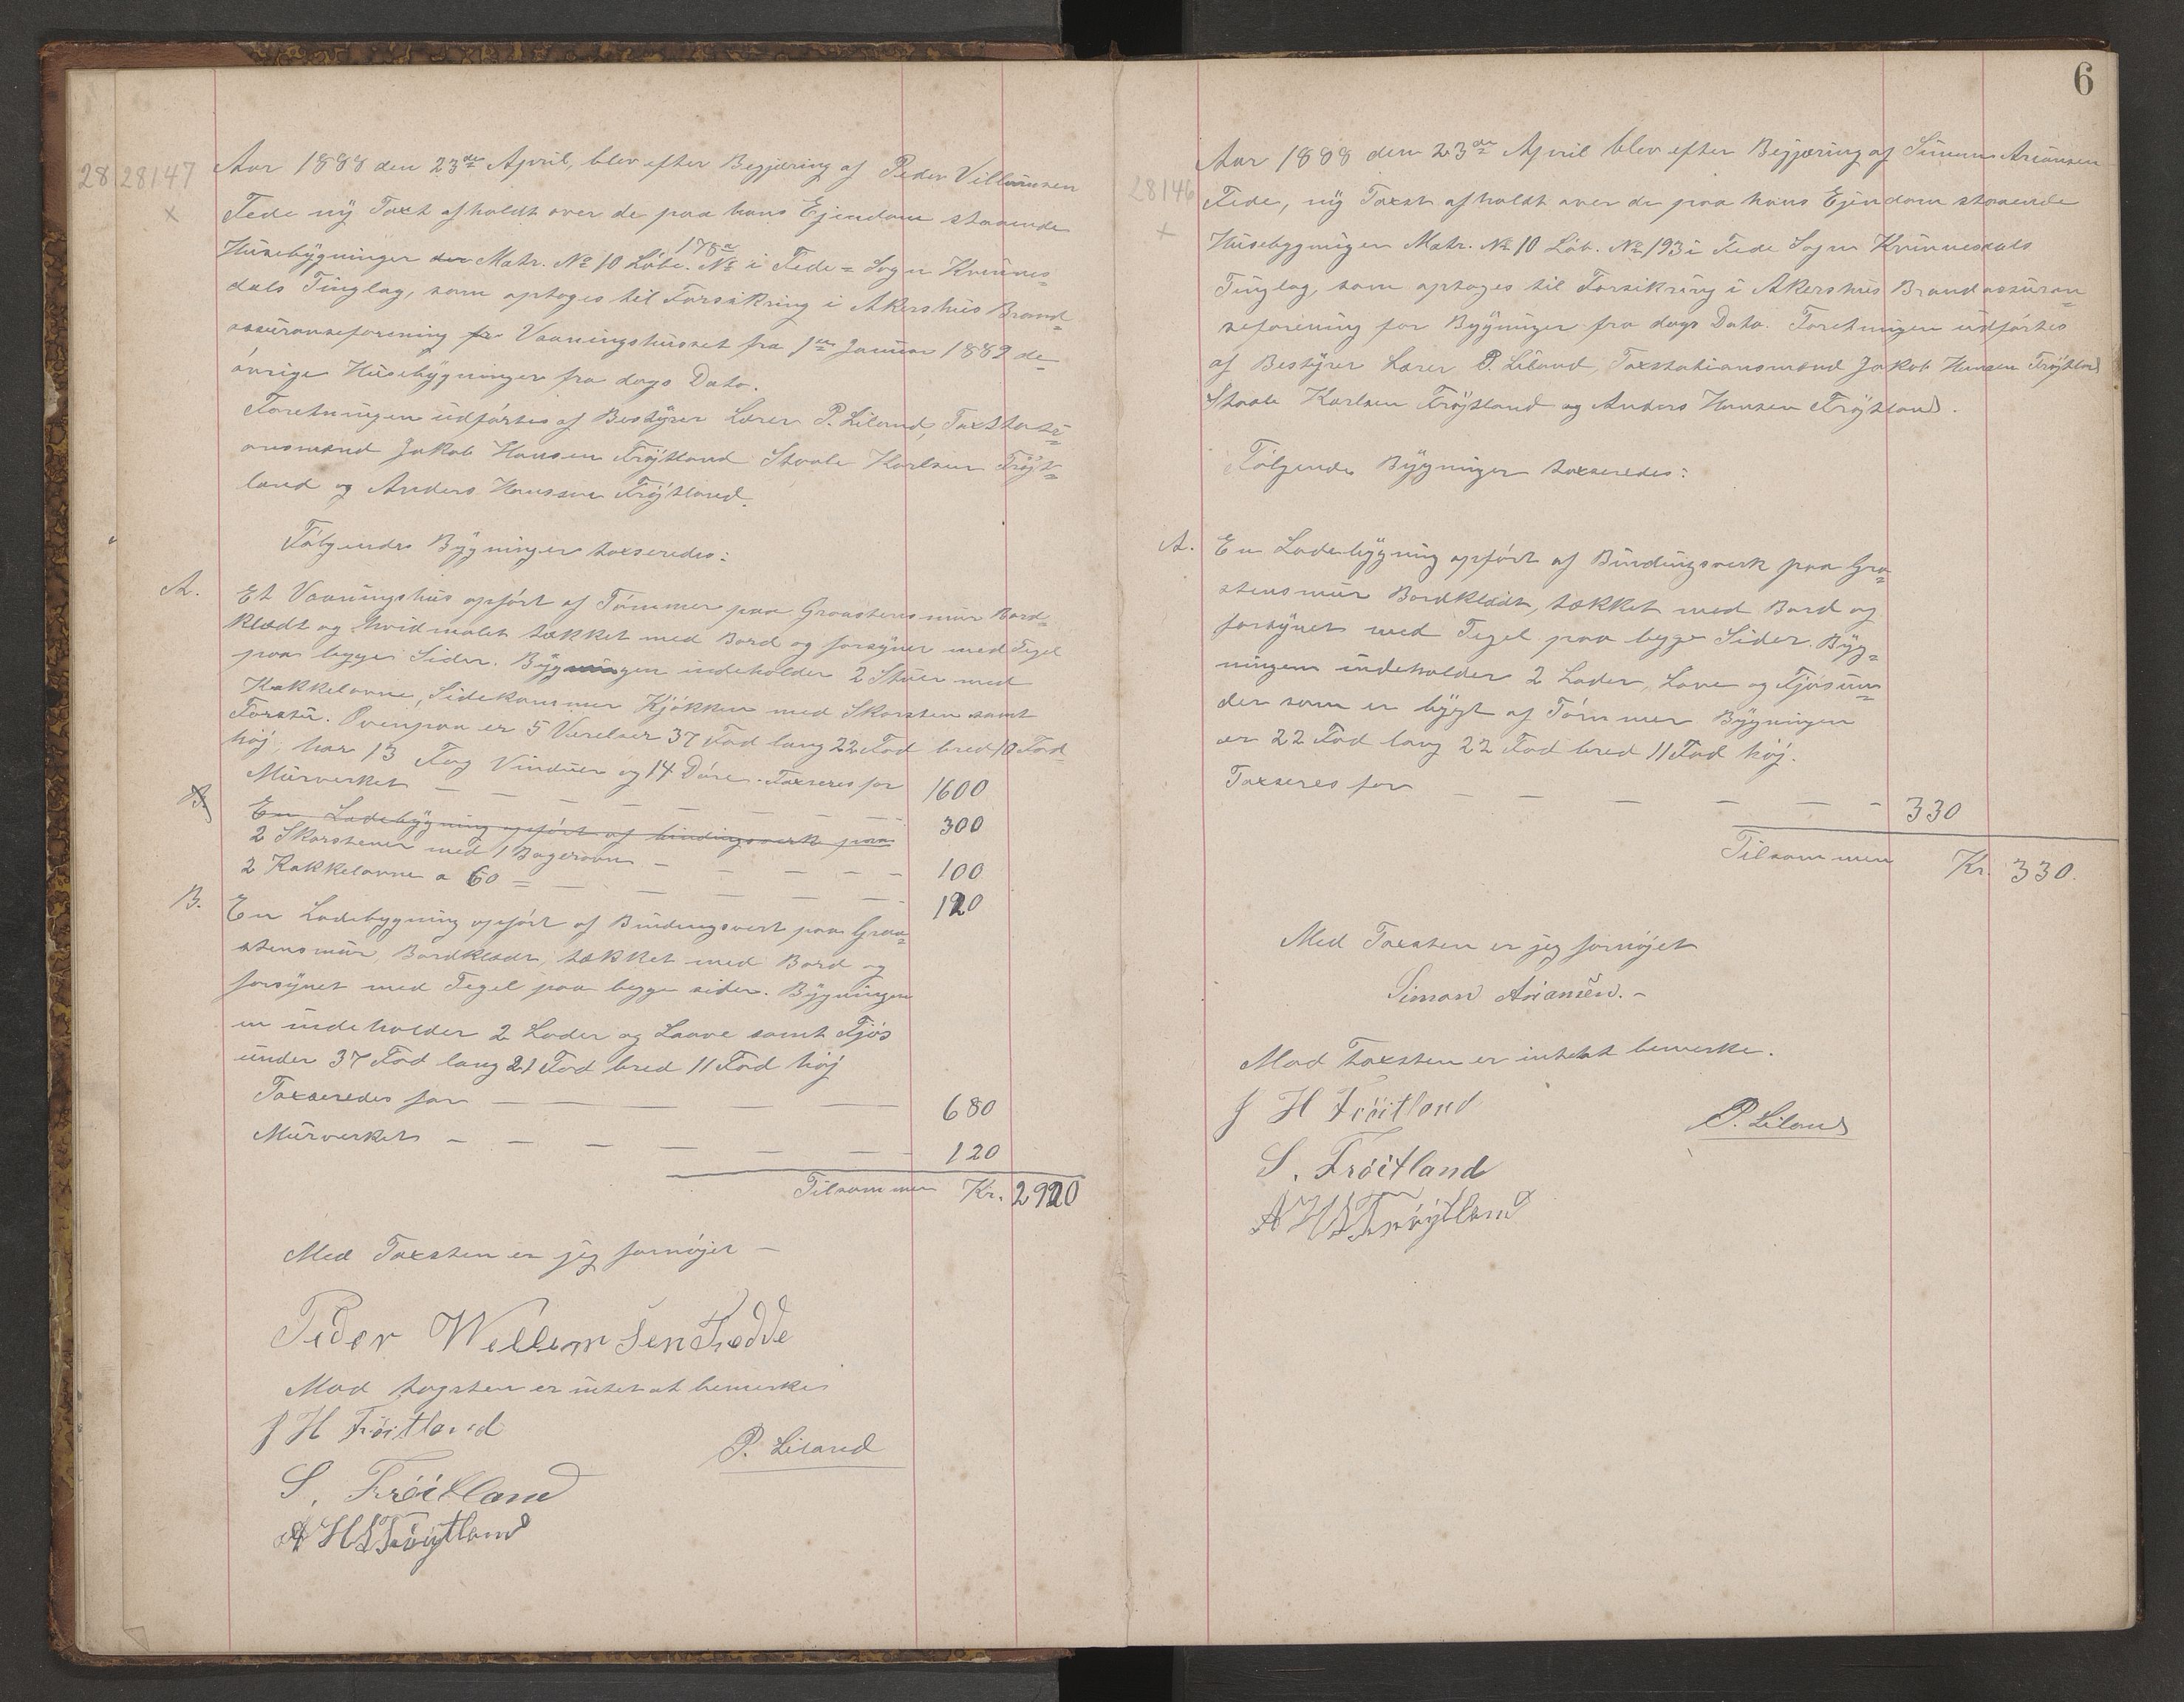 28 28147
Aar 1888 den 23de April, blev efter Begjæring af Peder Villumsen
Fede ny Taxt afholdt over de paa hans Ejendom staaende
Husebygninger der Matr. No 10 Løbe. No 178a i Fede = Sogn Kvines=
dals Tinglag, som optages til Forsikring i Akershus Brand=
assuranseforening for Vaaningshuset fra 1ste Januar 1889 de
øvrige Husebygninger fra dags Dato.
Foretningen udførtes af Bestyrer Lærer P. Liland, Taxstati=
onsmænd Jakob Hansen Frøjtland Staale Karlsen Frøjt=
land og Anders Hanssen Frøjtland.
Følgende Bygninger taxseredes:
A. Et Vaaningshus opført af Tømmer paa Graastensmur Bord=
klædt og hvidmalet tækket med Bord og forsynet med Tegel
paa begge Sider. Bygningen indeholder 2 Stuer med
Kakkelovne, Sidekammer Kjøkken med Skorsten samt
Forstu. Ovenpaa er 5 Værelser 37 Fod lang 22 Fod bred 18 Fod
høj, har 13 Fag Vinduer og 14 Døre. Taxseres for 1600
Murverket 300
B. En Ladebygning opført af bindingsverk paa
2 Skorstener med 1 Bagerovn 100
2 Kakkelovne a 60 = 120
B. En Ladebygning opført af Bindingsverk paa Graa=
stensmur, Bordklædt, tækket med Bord og
forsynet med Tegel paa begge sider. Bygningen
en indeholder 2 Lader og Laave samt Fjøs
under 37 Fod lang 21 Fod bred 11 Fod høj
Taxseredes for 680
Murverket 120
Tilsammen Kr. 2920
Med Taxsten er jeg fornøjet
Peder Wellemsen Fedde
Mod tagsten er intet at bemerke
J H Frøitland
P. Liland
S. Frøitland
A H S Frøytland
6
28146
Aar 1888 den 23de April blev efter Begjæring af Simon Ariansen
Fede, ny Taxst afholdt over de paa hans Ejendom staaende
Husebygninger Matr. No 10 Løb. No 193 i Fede Sogn Kvinesdals
Tinglag, som optages til Forsikring i Akershus Brandassuran=
seforening for Bygninger fra dags Dato. Foretningen udførtes
af Bestyrer Lærer P. Liland, Taxstationsmænd Jakob Hansen Frøjtland
Staale Karlsen Frøjtland og Anders Hansen Frøjtland.
Følgende Bygninger taxseredes:
A. En Ladebygning opført af Bindingsverk paa Gra=
stensmur Bordklædt, tækket med Bord og
forsynet med Tegel paa begge Sider. Byg=
ningen indeholder 2 Lader, Lave og Fjøs un=
der som er bygt af Tømmer Bygningen
er 22 Fod lang 22 Fod bred 11 Fod høj.
Taxseres for 330
Tilsammen Kr. 330.
Med Taxsten er jeg fornøjet
Simon Ariansen.
Mod taxsten er intet at bemerke.
J H Frøitland
P. Liland
S. Frøitland
A H S Frøytland